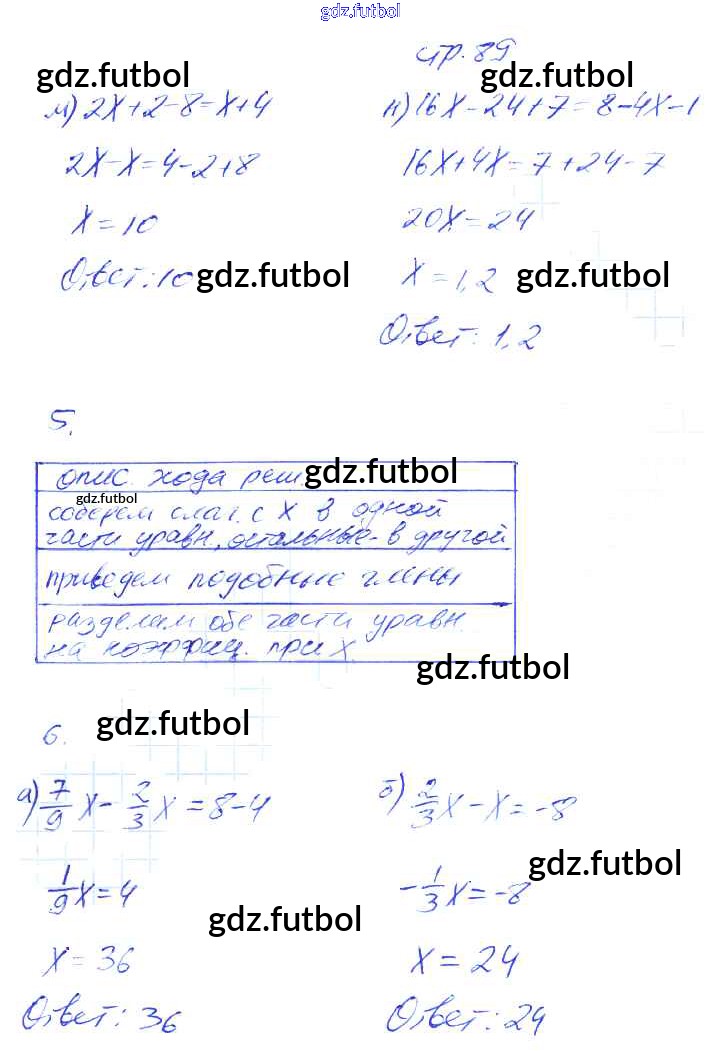 gdz.futbol
стр. 89
gdz.futbol gdz.futbol
м) 2x+2-8=x+4
2x-x=4-2+8
x=10
Ответ: 10 gdz.futbol
н) 16x-24+7=8-4x-1
16x+4x=7+24-7
20x=24
x=1,2 gdz.futbol
Ответ: 1,2
5.
опис. хода реш. gdz.futbol
gdz.futbol
соберем слаг. с x в одной
части уравн., остальные - в другой
приведем подобные члены
разделим обе части уравн.
на коэффиц. при x
gdz.futbol
6. gdz.futbol
а) 7/9 x - 2/3 x = 8-4
1/9 x = 4
gdz.futbol
x = 36
Ответ: 36
б) 2/3 x - x = -8
gdz.futbol
-1/3 x = -8
x = 24
Ответ: 24